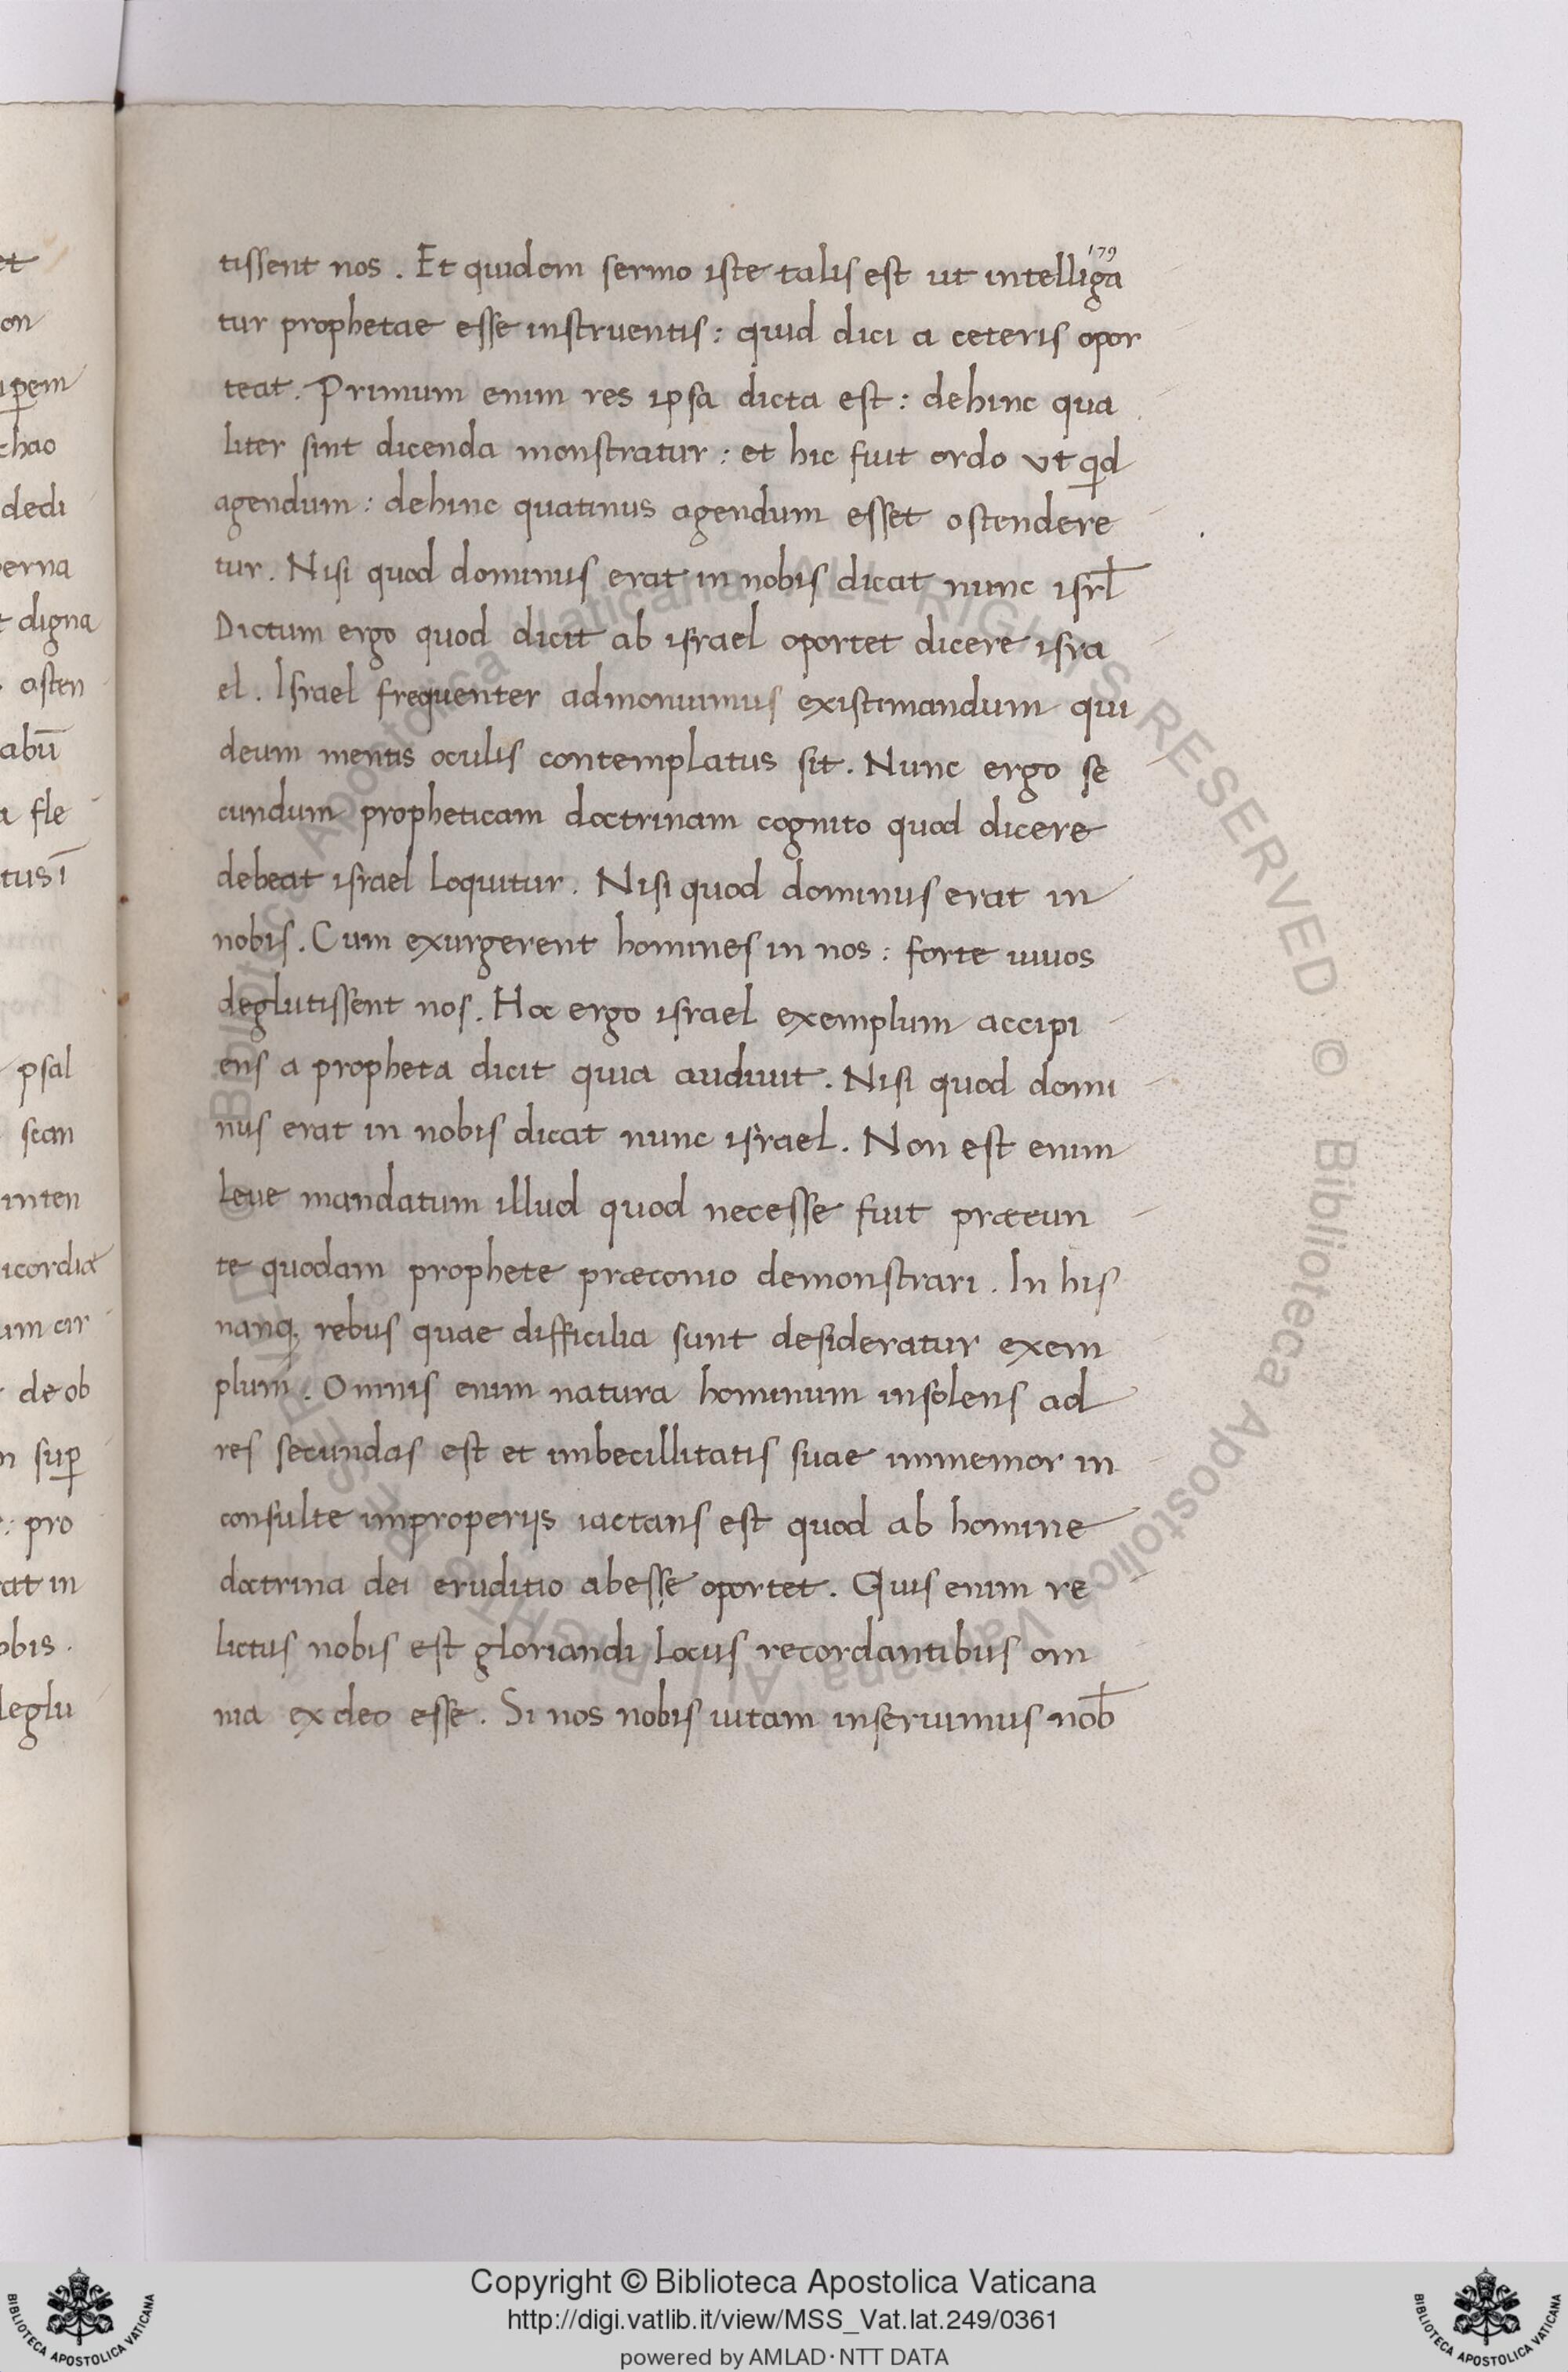 179
tissent nos. Et quidem sermo iste talis est ut intelliga
tur prophetae esse instruentis: quid dici a ceteris opor
teat. Primum enim res ipsa dicta est: dehinc qua
liter sint dicenda monstratur: et hic fuit ordo ut qid
agendum: dehinc quatinus agendum esset ostendere
tur. Nisi quod dominus erat in nobis dicat nunc isrl̄
Dictum ergo quod dicit ab israel oportet dicere isra
el. Israel frequenter admonuimus existimandum qui
deum mentis oculis contemplatus sit. Nunc ergo se
cundum propheticam doctrinam cognito quod dicere
debeat israel loquitur. Nisi quod dominus erat in
nobis. Cum exurgerent homines in nos: forte uiuos
deglutissent nos. Hoc ergo israel exemplum accipi
ens a propheta dicit quia audiuit. Nisi quod domi
nus erat in nobis dicat nunc israel. Non est enim
leue mandatum illud quod necesse fuit præeun
te quodam prophete præconio demonstrari. In his
nanq; rebus quae difficilia sunt desideratur exem
plum. Omnis enim natura hominum insolens ad
res secundas est et imbecillitatis suae immemor in
consulte improperijs iactans est quod ab homine
doctrina dei eruditio abesse oportet. Quis enim re
lictus nobis est gloriandi locus recordantibus om
nia ex deo esse. Si nos nobis uitam inseruimus nob̄
et
on
chao
dedi
erna
digna
osten
abū
a fle
tus ī
psal
scan
inten
icordia
um cir
de ob
pro
at in
obis.
deglu
© Biblioteca Apostolica Vaticana ALL RIGHTS RESERVED © Biblioteca Apostolica Vaticana ALL RIGHTS RESERVED
Copyright © Biblioteca Apostolica Vaticana
http://digi.vatlib.it/view/MSS_Vat.lat.249/0361
powered by AMLAD·NTT DATA
BIBLIOTECA APOSTOLICA VATICANA
BIBLIOTECA APOSTOLICA VATICANA